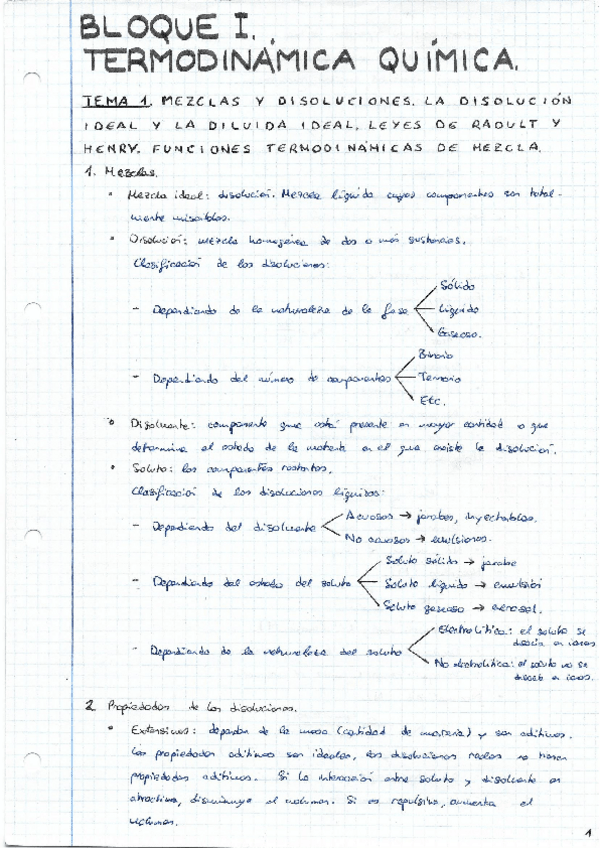 BLOQUE I.
TERMODINÁMICA QUÍMICA.
TEMA 1. MEZCLAS Y DISOLUCIONES. LA DISOLUCIÓN
IDEAL Y LA DILUIDA IDEAL. LEYES DE RAOULT Y
HENRY. FUNCIONES TERMODINÁMICAS DE MEZCLA.
1. Mezclas.
• Mezcla ideal: disolución. Mezcla líquida cuyos componentes son total-
mente miscibles.
• Disolución: mezcla homogénea de dos o más sustancias.
Clasificación de las disoluciones:
- Dependiendo de la naturaleza de la fase
Sólido
Líquido
Gaseoso.
- Dependiendo del número de componentes
Binario
Ternario
Etc.
• Disolvente: componente que está presente en mayor cantidad o que
determina el estado de la materia en el que existe la disolución.
• Soluto: los componentes restantes.
Clasificación de las disoluciones líquidas:
- Dependiendo del disolvente
Acuosas → jarabes, inyectables.
No acuosas → emulsiones.
- Dependiendo del estado del soluto
Soluto sólido → jarabe
Soluto líquido → emulsión
Soluto gaseoso → aerosol.
- Dependiendo de la naturaleza del soluto
Electrolítica: el soluto se
disocia en iones
No electrolítica: el soluto no se
disocia en iones.
2. Propiedades de las disoluciones.
• Extensivas: dependen de la masa (cantidad de materia) y son aditivas.
Las propiedades aditivas son ideales, las disoluciones reales no tienen
propiedades aditivas. Si la interacción entre soluto y disolvente es
atractiva, disminuye el volumen. Si es repulsiva, aumenta el
volumen.
1